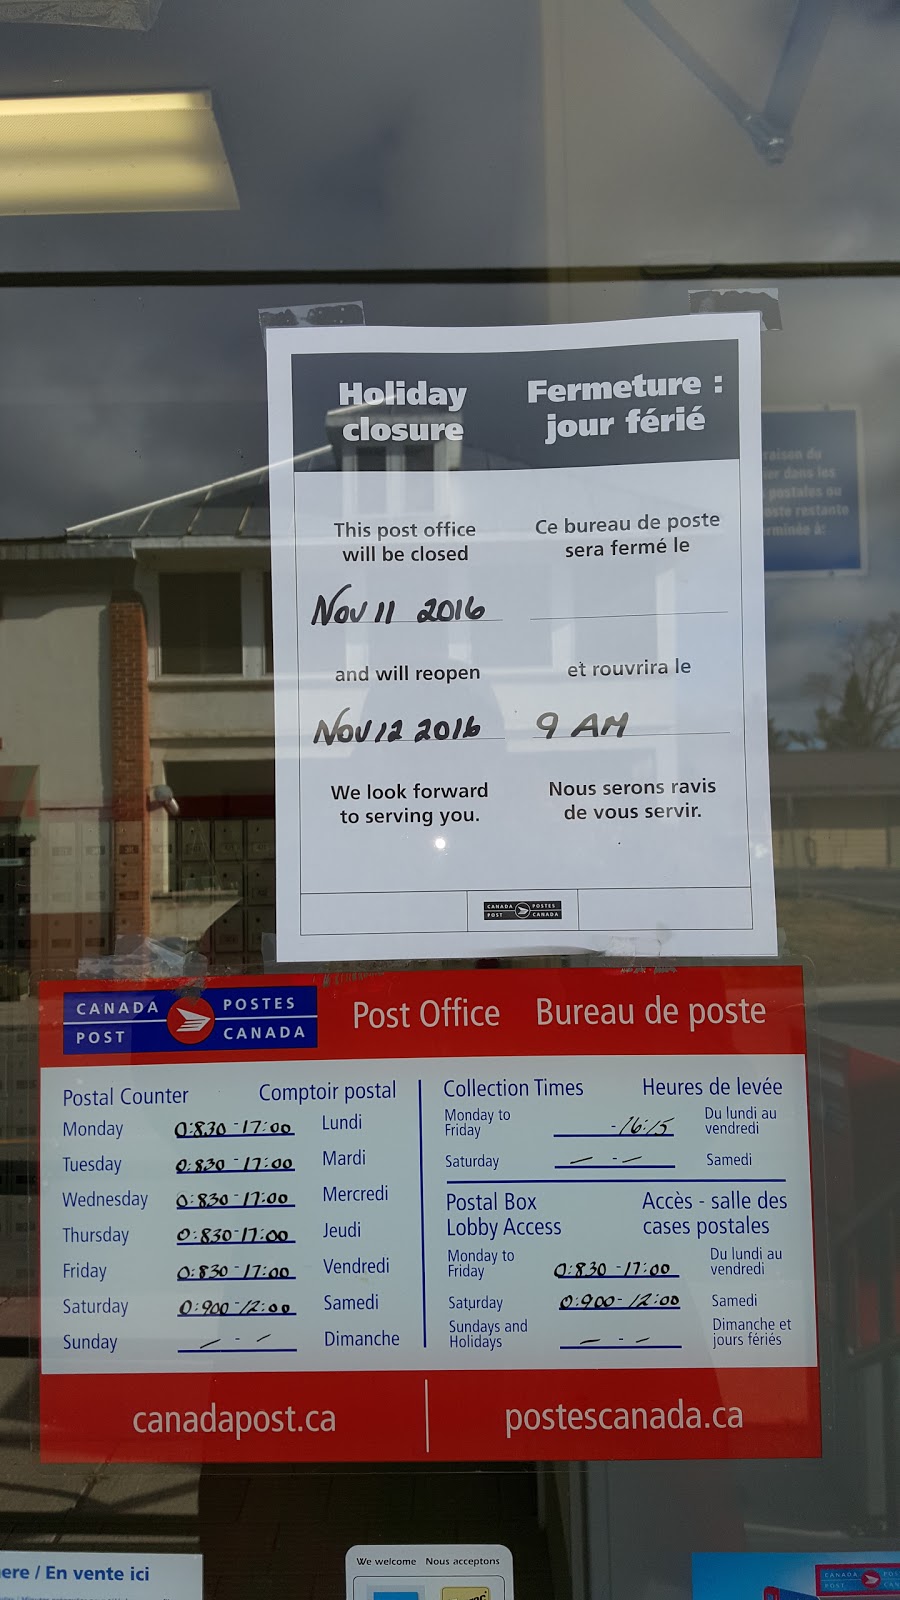 Holiday
closure
Fermeture :
jour férié
This post office
will be closed
Ce bureau de poste
sera fermé le
Nov 11 2016
and will reopen
et rouvrira le
Nov 12 2016
9 AM
We look forward
to serving you.
Nous serons ravis
de vous servir.
CANADA POST
POSTES CANADA
raison du
ier dans les
postales ou
oste restante
rminée à:
CANADA
POST
POSTES
CANADA
Post Office
Bureau de poste
Postal Counter
Comptoir postal
Monday 0:830-17:00 Lundi
Tuesday 0:830-17:00 Mardi
Wednesday 0:830-17:00 Mercredi
Thursday 0:830-17:00 Jeudi
Friday 0:830-17:00 Vendredi
Saturday 0:900-12:00 Samedi
Sunday - - - Dimanche
Collection Times
Heures de levée
Monday to
Friday
-16:15
Du lundi au
vendredi
Saturday - - - Samedi
Postal Box
Lobby Access
Accès - salle des
cases postales
Monday to
Friday
0:830-17:00
Du lundi au
vendredi
Saturday 0:900-12:00 Samedi
Sundays and
Holidays
- - -
Dimanche et
jours fériés
canadapost.ca
postescanada.ca
ere / En vente ici
We welcome Nous acceptons
CANADA
POST